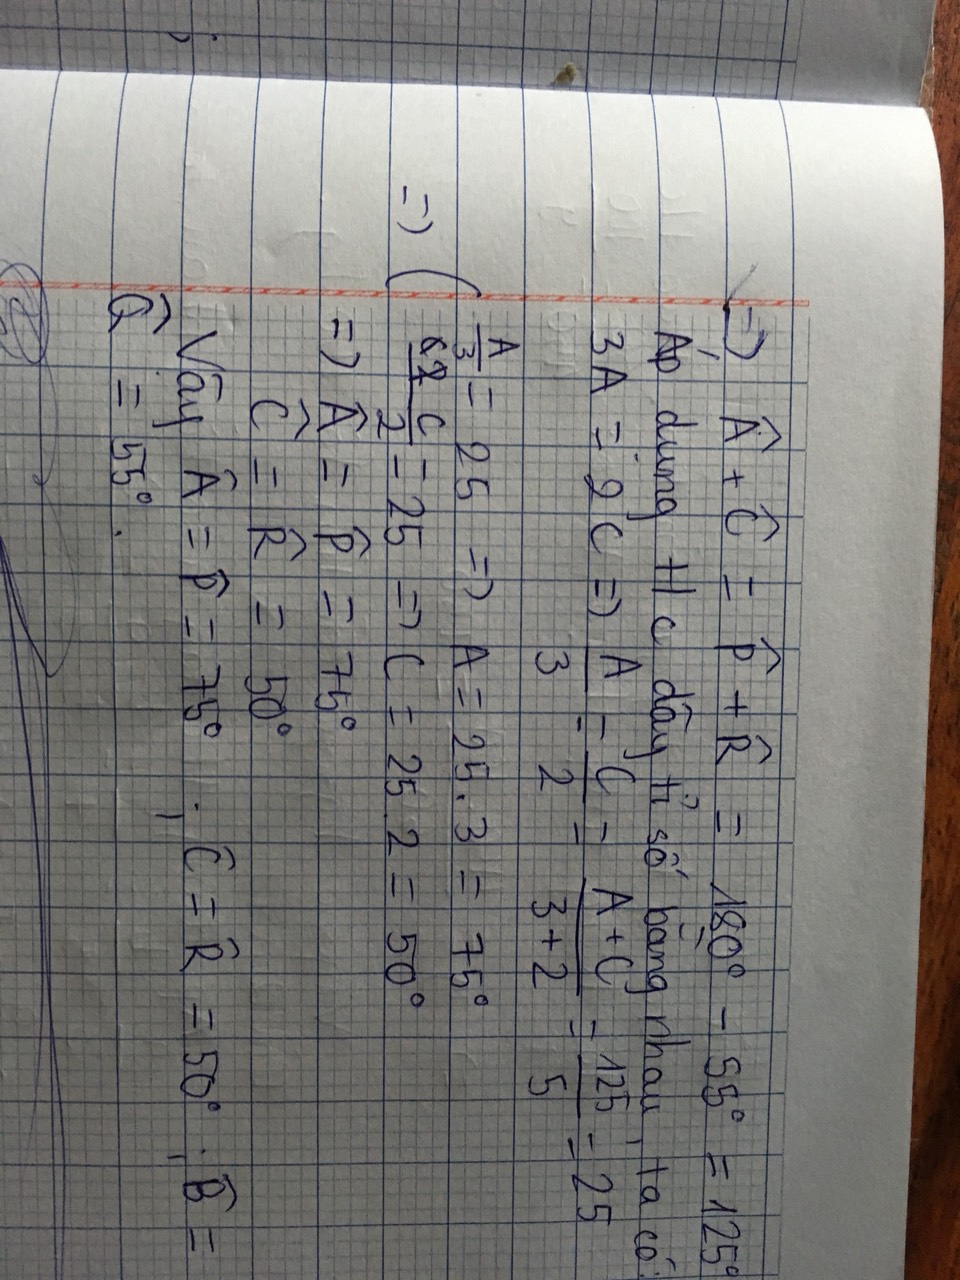 => Â + Ĉ = P̂ + R̂ = 180° - 55° = 125°
Áp dụng t/c dãy tỉ số bằng nhau, ta có:
3A = 2C => A/3 = C/2 = A+C/3+2 = 125/5 = 25
=> ( A/3 = 25 => A = 25.3 = 75°
C/2 = 25 => C = 25.2 = 50°
=> Â = P̂ = 75°
Ĉ = R̂ = 50°
Vậy Â = P̂ = 75° ; Ĉ = R̂ = 50° ; B̂ =
Q̂ = 55°.